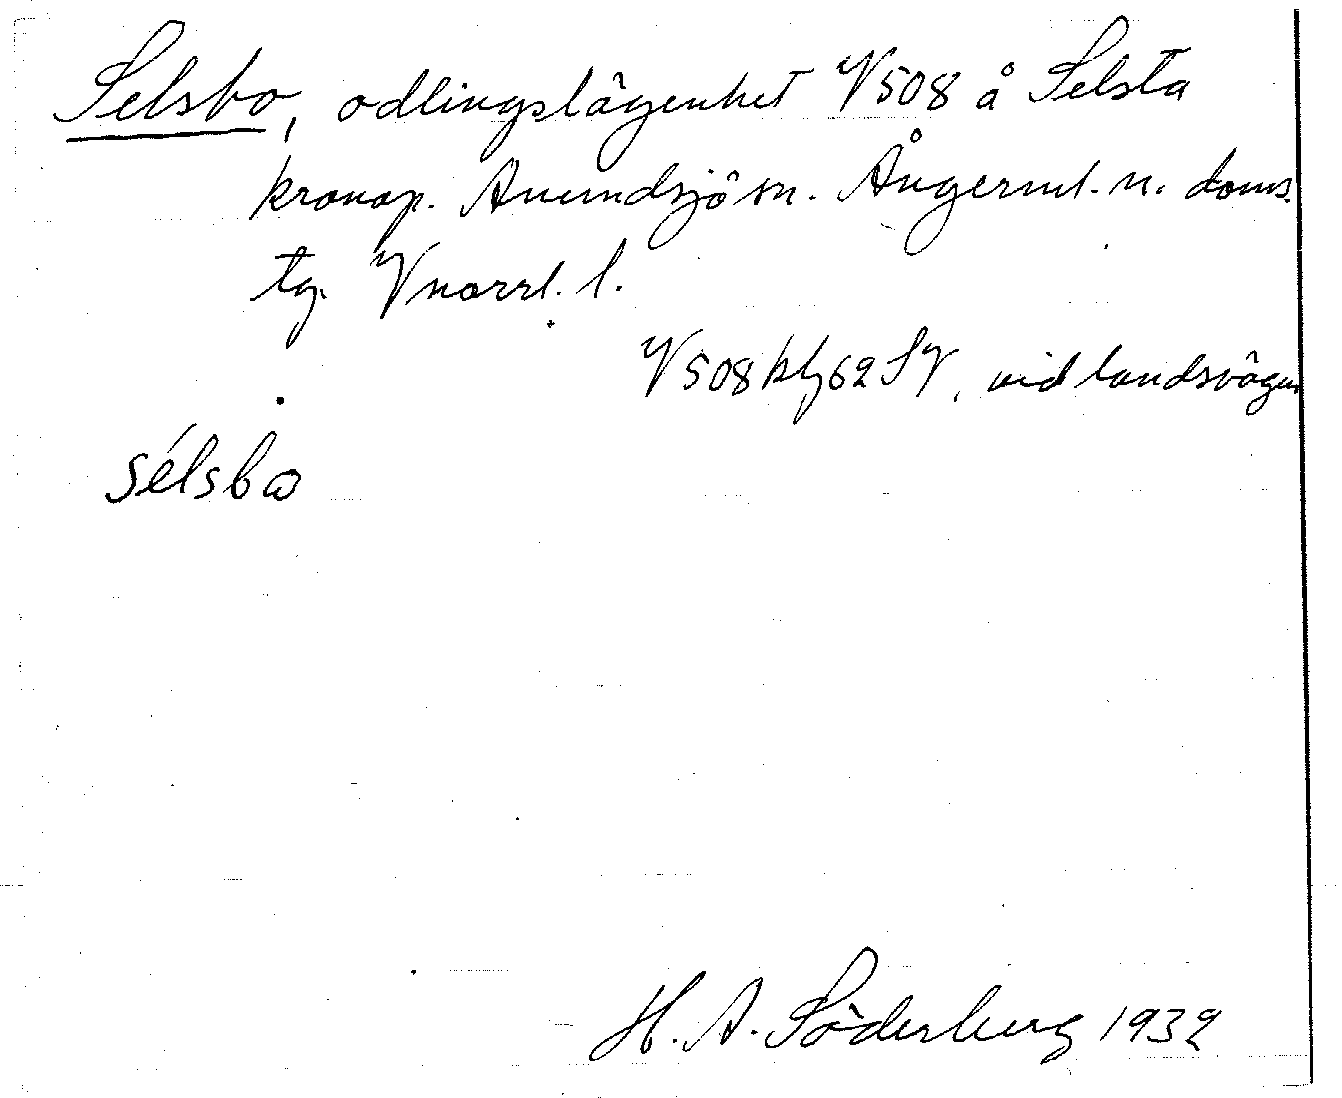 Selsbo, odlingslägenhet V508 å Selsta
kronop. Anundsjö sn. Ångerml. n. doms.
tg. Vnorrl. l.
V508 kbg 62 SV, vid landsvägen
sélsbω
H. A. Söderberg 1932